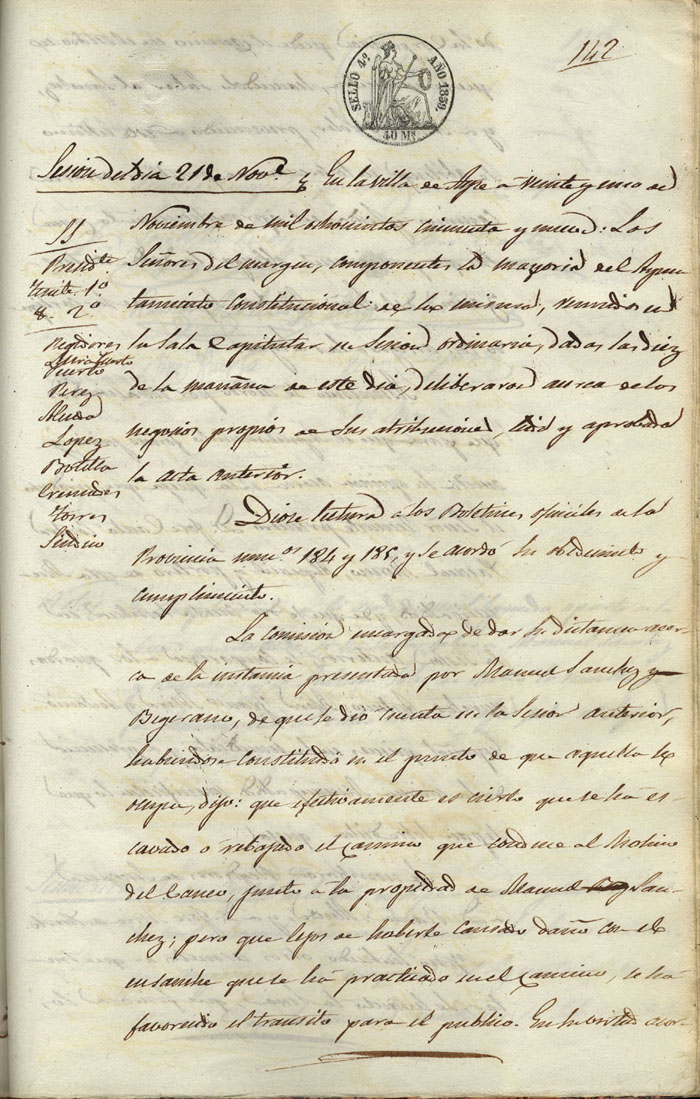 142
SELLO 4º AÑO 1859.
40 Ms.
Sesion del dia 21 de Nove.
En la villa de Aspe a veinte y uno de
Noviembre de mil ochocientos cincuenta y nueve: Los
Señores del margen, componentes la mayoria del Ayun
tamiento constitucional de la misma, reunidos en
la Sala Capitular en Sesion ordinaria, dadas las diez
de la mañana de este dia, deliberaron acerca de los
negocios propios de sus atribuciones, leida y aprobada
la acta anterior.
SS
Presidte.
Tenite. 1º
2º
Regidores
Puerto
Perez
Lopez
Botella
Cremades
Torres
Sindico
Diose lectura a los Boletines oficiales de la
Provincia numos. 184 y 185, y se acordo su obedecimto. y
cumplimiento.
La comision encargada de dar su dictamen acer-
ca de la instancia presentada por Manuel Sanchez y
Begerano, de que se dio cuenta en la Sesion anterior,
habiendose constituido en el punto de que aquella se
ocupa, dijo: que efectivamente es cierto que se ha es-
cavado o rebajado el camino que conduce al Molino
del Canco, junto a la propiedad de Manuel San-
chez; pero que lejos de haberle causado daño con el
ensanche que se ha practicado en el camino, se ha
favorecido el transito para el publico. En su virtud acor-